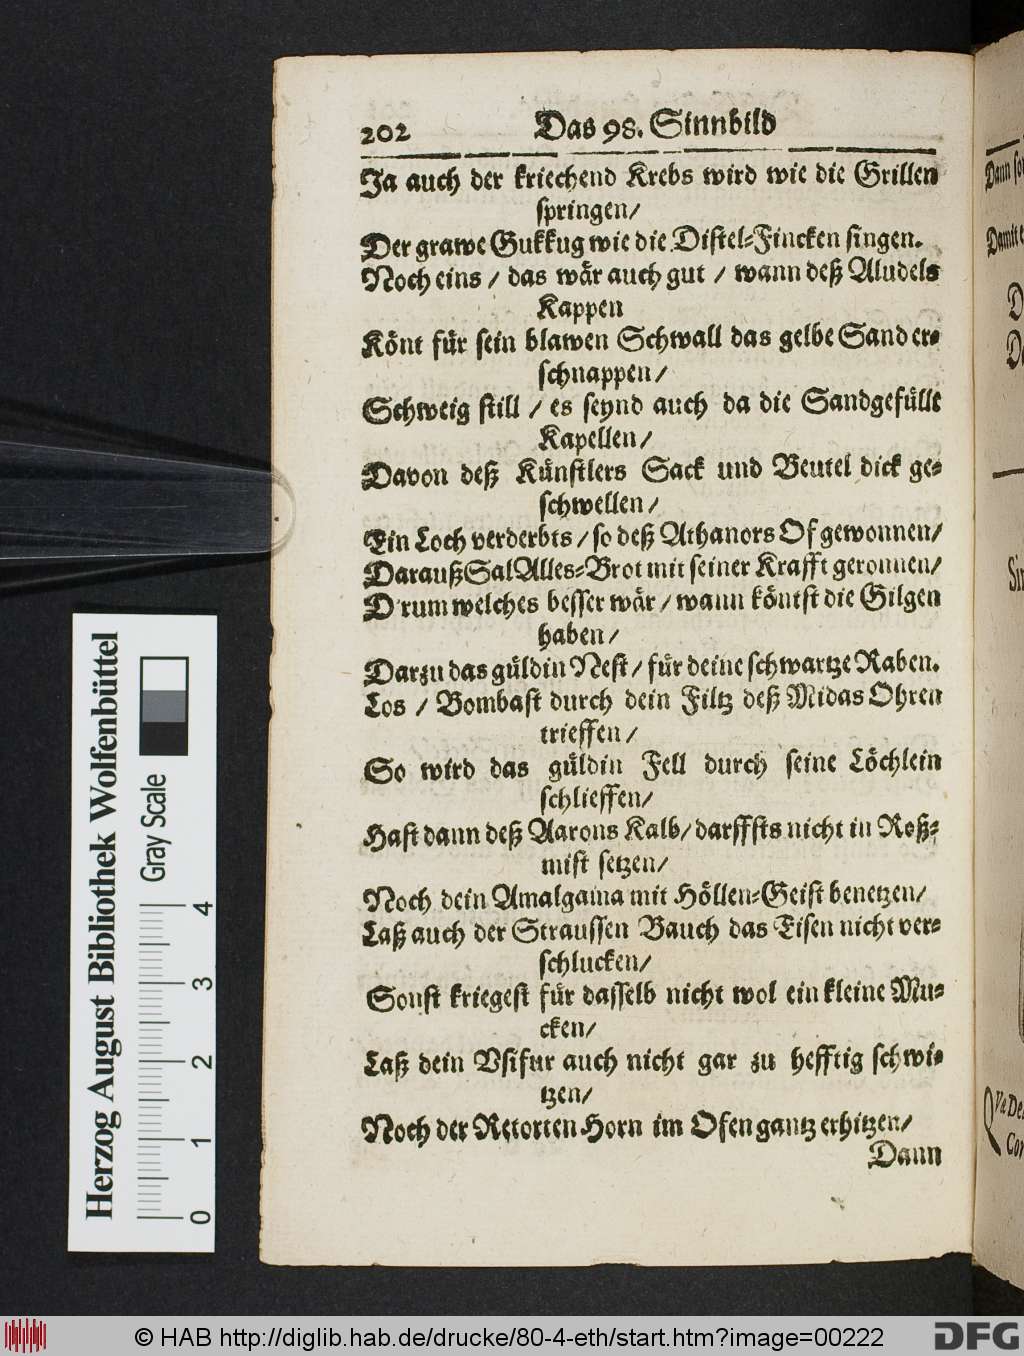 202 Das 98. Sinnbild
Ja auch der kriechend Krebs wird wie die Grillen
springen/
Der grawe Gukkug wie die Distel-Fincken singen.
Noch eins / das wär auch gut / wann deß Aludels
Kappen
Könt für sein blawen Schwall das gelbe Sand er-
schnappen/
Schweig still / es seynd auch da die Sandgefüllt
Kapellen/
Davon deß Künstlers Sack und Beutel dick ge-
schwellen/
Ein Loch verderbts / so deß Athanors Of gewonnen/
Darauß Sal Alles-Brot mit seiner Krafft geronnen/
D'rum welches besser wär / wann köntst die Gilgen
haben/
Darzu das güldin Nest / für deine schwartze Raben.
Los / Bombast durch dein Filtz deß Midas Ohren
trieffen/
So wird das güldin Fell durch seine Löchlein
schlieffen/
Hast dann deß Aarons Kalb/ darffsts nicht in Roß-
mist setzen/
Noch dein Amalgama mit Höllen-Geist benetzen/
Laß auch der Straussen Bauch das Eisen nicht ver-
schlucken/
Sonst kriegest für dasselb nicht wol ein kleine Mu-
cken/
Laß dein Vsifur auch nicht gar zu hefftig schwi-
tzen/
Noch der Retorten Horn im Ofen gantz erhitzen/
Dann
Dann
Damit
Herzog August Bibliothek Wolfenbüttel
Gray Scale
0 1 2 3 4
© HAB http://diglib.hab.de/drucke/80-4-eth/start.htm?image=00222
DFG